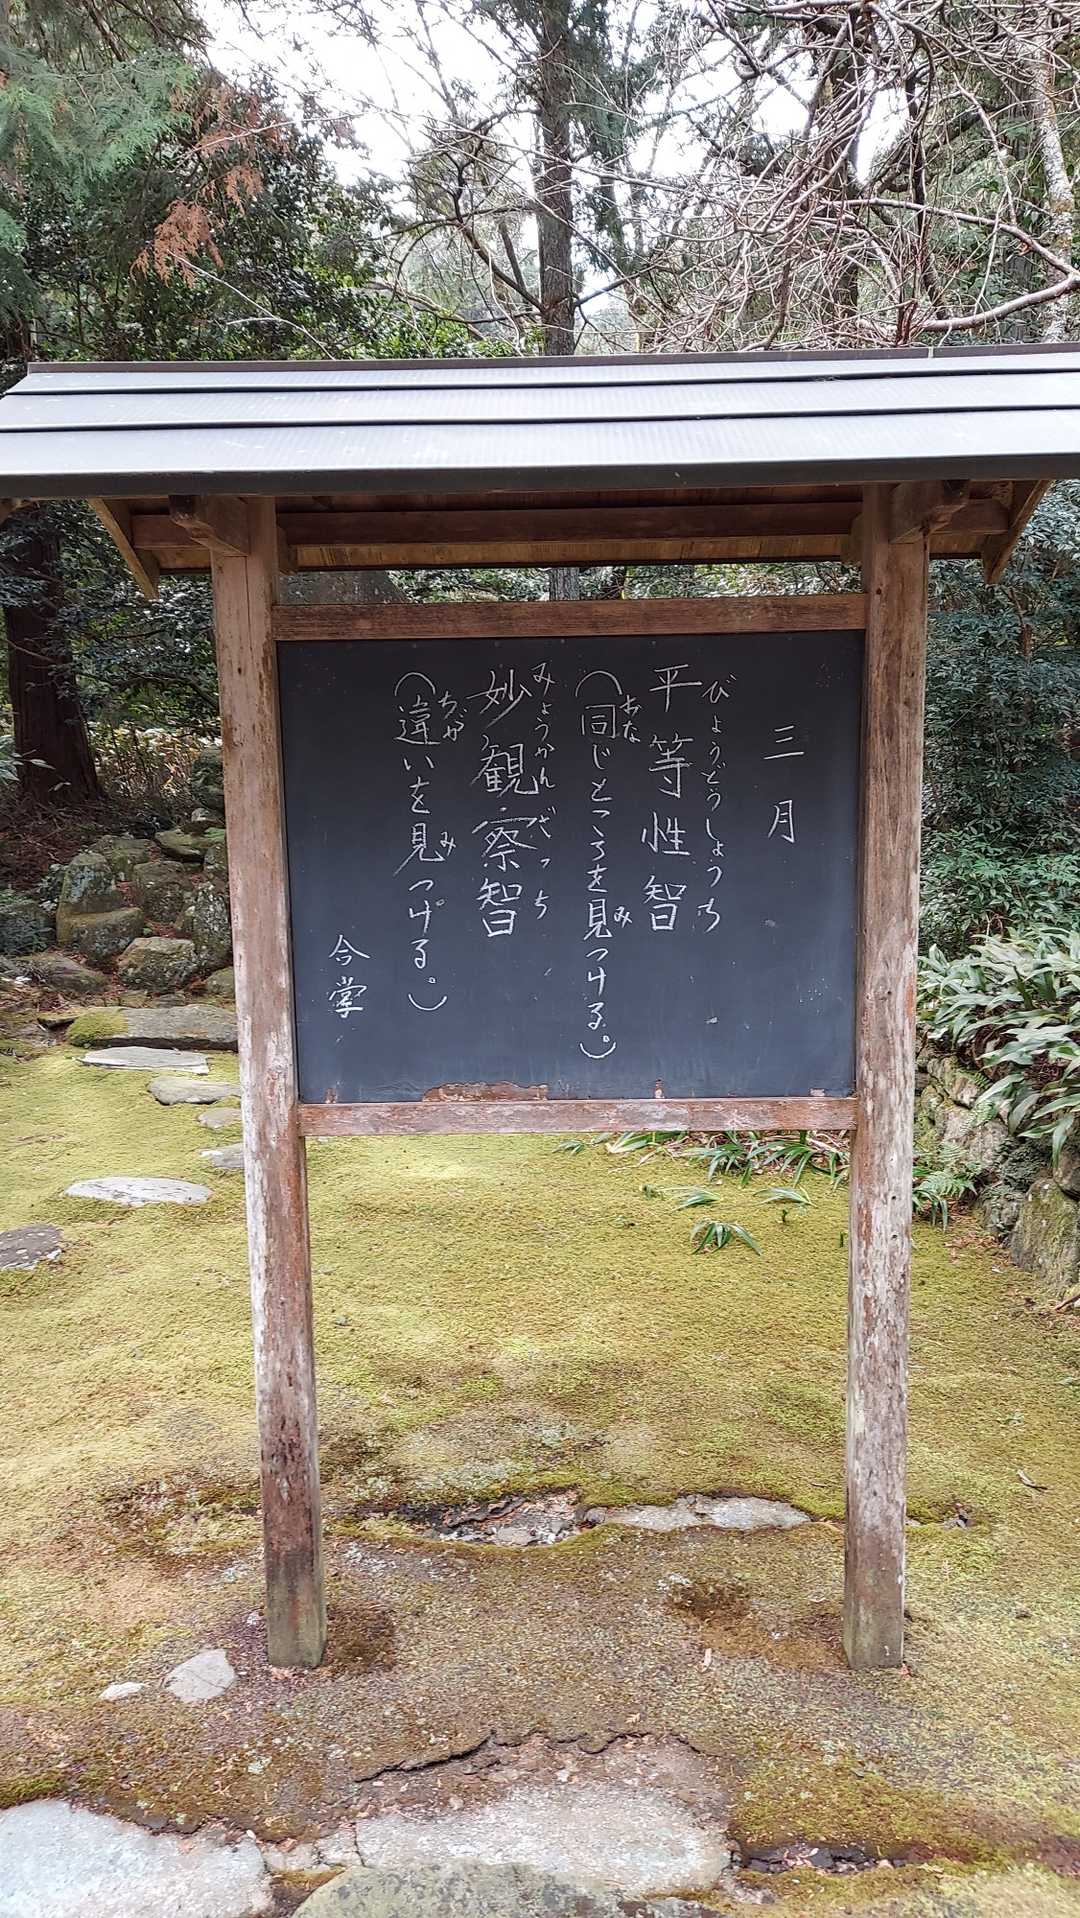 三月
びょうどうしょうち
平等性智
おな　み
(同じところを見つける。)
みょうかんざっち
妙観察智
ちが　み
(違いを見つける。)
合掌